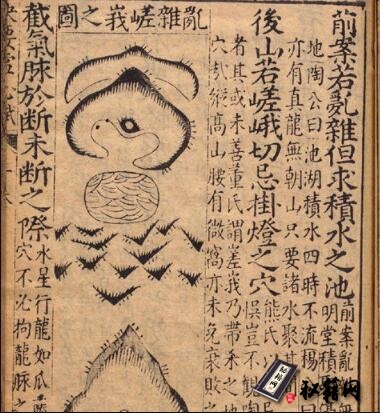 前案若亂雜但求積水之池
前案亂
明堂積
地陶公曰池湖積水四時不流楊
亦有真龍無朝山只要諸水聚其
後山若嵯峨切忌掛燈之穴
熊氏
悮豈不
者其或未善董氏謂嵯峨乃帶杀之
高山腰有微窩亦未免衰敗之
亂雜嵯峩之圖
截氣脉於断未断之際
水星行龍如瓜
穴不沈拘龍脉之
秘籍网